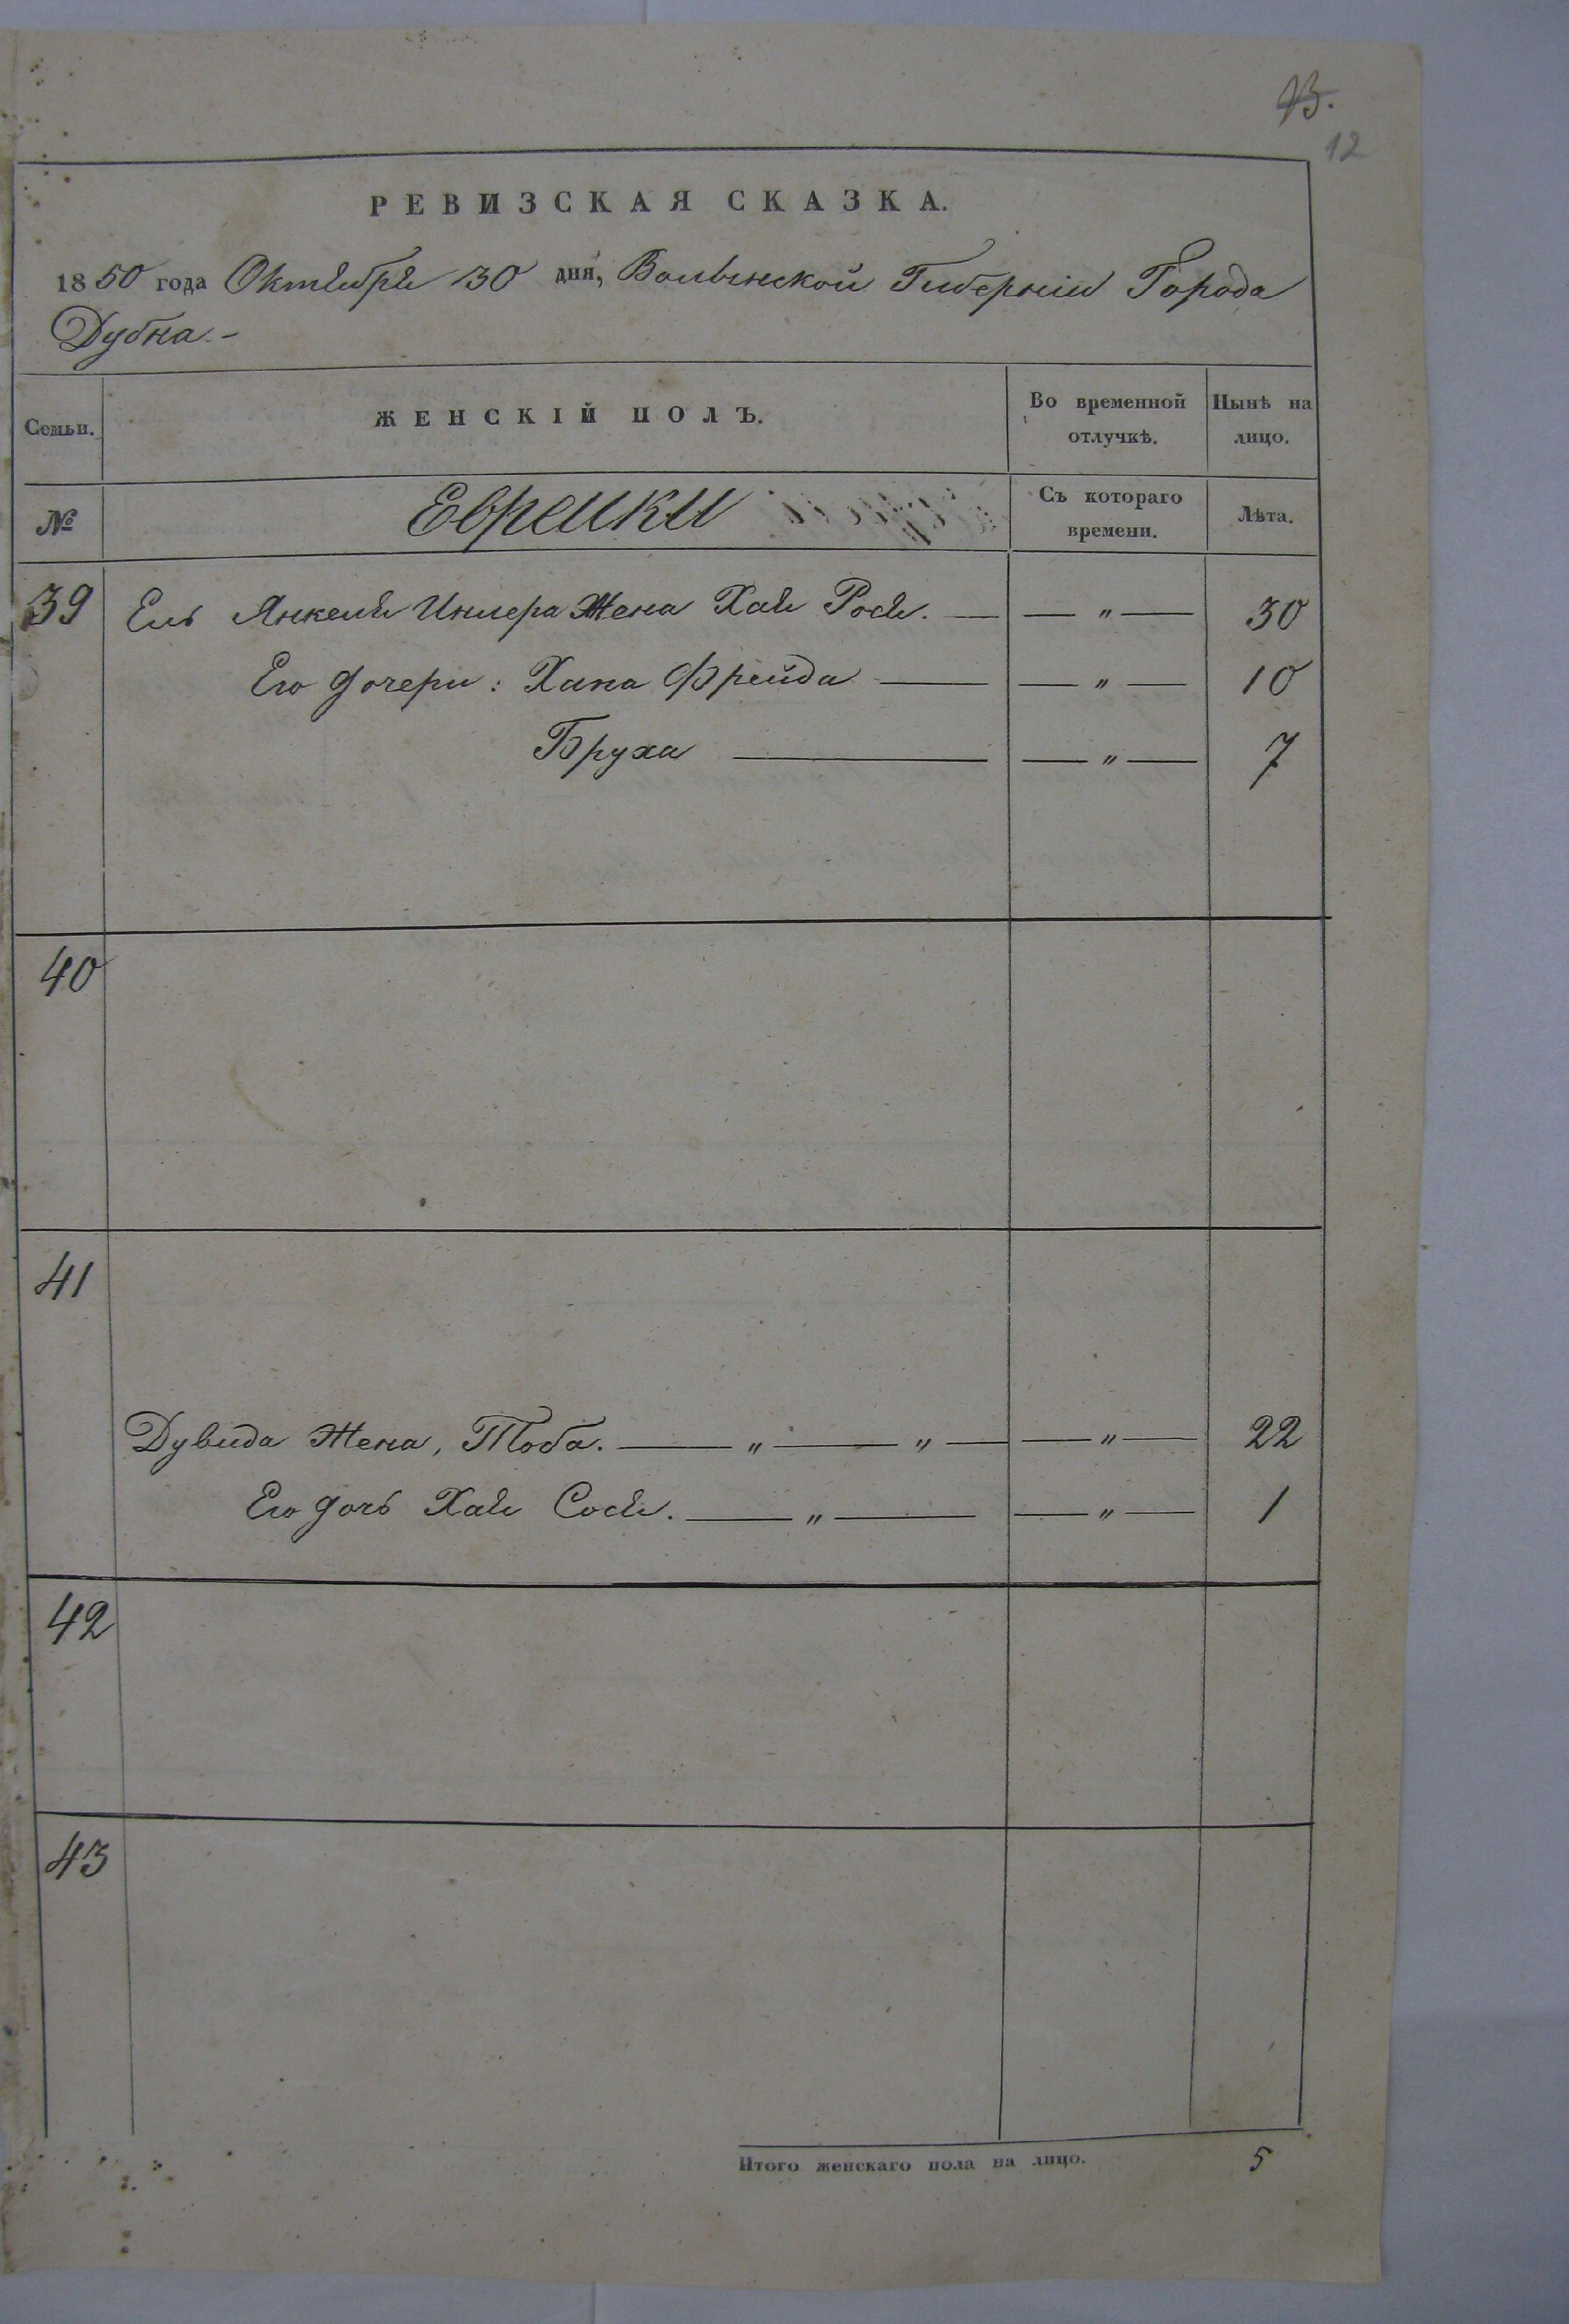 12
РЕВИЗСКАЯ СКАЗКА.
1850 года Октября 30 дня, Волынской Губерніи Города
Дубна.-
Семьи. ЖЕНСКІЙ ПОЛЪ. Во временной отлучкѣ. Нынѣ на лицо.
№ Еврейки Съ котораго времени. Лѣта.
39 Янкеля Жена Хая Рося. — — " — 30
Его дочери: Хана Фрейда — — " — 10
Бруха — — " — 7
40
41
Дувида Жена, Тоба. — " — " — — " — 22
Его дочь Хая Сося. — " — — " — 1
42
43
Итого женскаго пола на лицо. 5